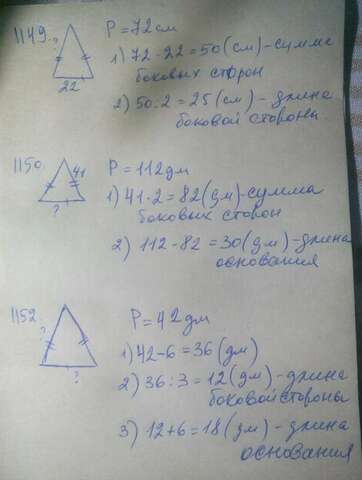 1149.
?
22
P = 72 см
1) 72 - 22 = 50 (см) - сумма
боковых сторон
2) 50 : 2 = 25 (см) - длина
боковой стороны
1150.
41
?
P = 112 дм
1) 41 · 2 = 82 (дм) - сумма
боковых сторон
2) 112 - 82 = 30 (дм) - длина
основания
1152.
?
?
P = 42 дм
1) 42 - 6 = 36 (дм)
2) 36 : 3 = 12 (дм) - длина
боковой стороны
3) 12 + 6 = 18 (дм) - длина
основания